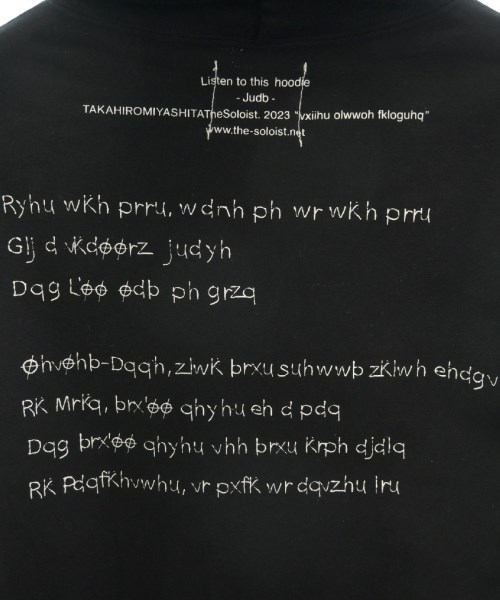 Listen to this hoodie
- Judb -
TAKAHIROMIYASHITATheSoloist. 2023 "vxiihu olwwoh fkloguhq"
www.the-soloist.net
Ryhu wKh prru, wdnh ph wr wKh prru
Glj d vKdøørz judyh
Dqg L'øø ødb ph grzq
Øhvøhb-Dqqh, zlwK brxu suhwwb zKlwh ehdgv
RK MrKq, brx'øø qhyhu eh d pdq
Dqg brx'øø qhyhu vhh brxu Krph djdlq
RK PdqfKhvwhu, vr pxfK wr dqvzhu iru